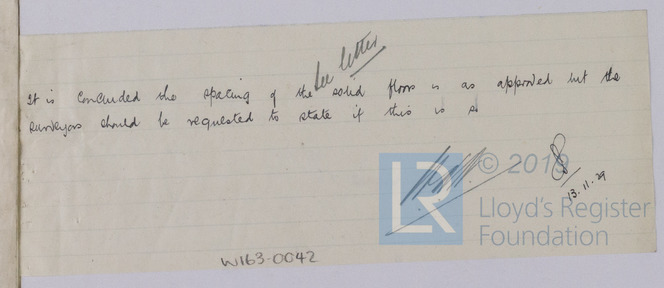 See letter
It is concluded the spacing of the solid floors is as approved but the
surveyors should be requested to state if this is so
13.11.29
W163-0042
LR
© 2019
Lloyd's Register
Foundation